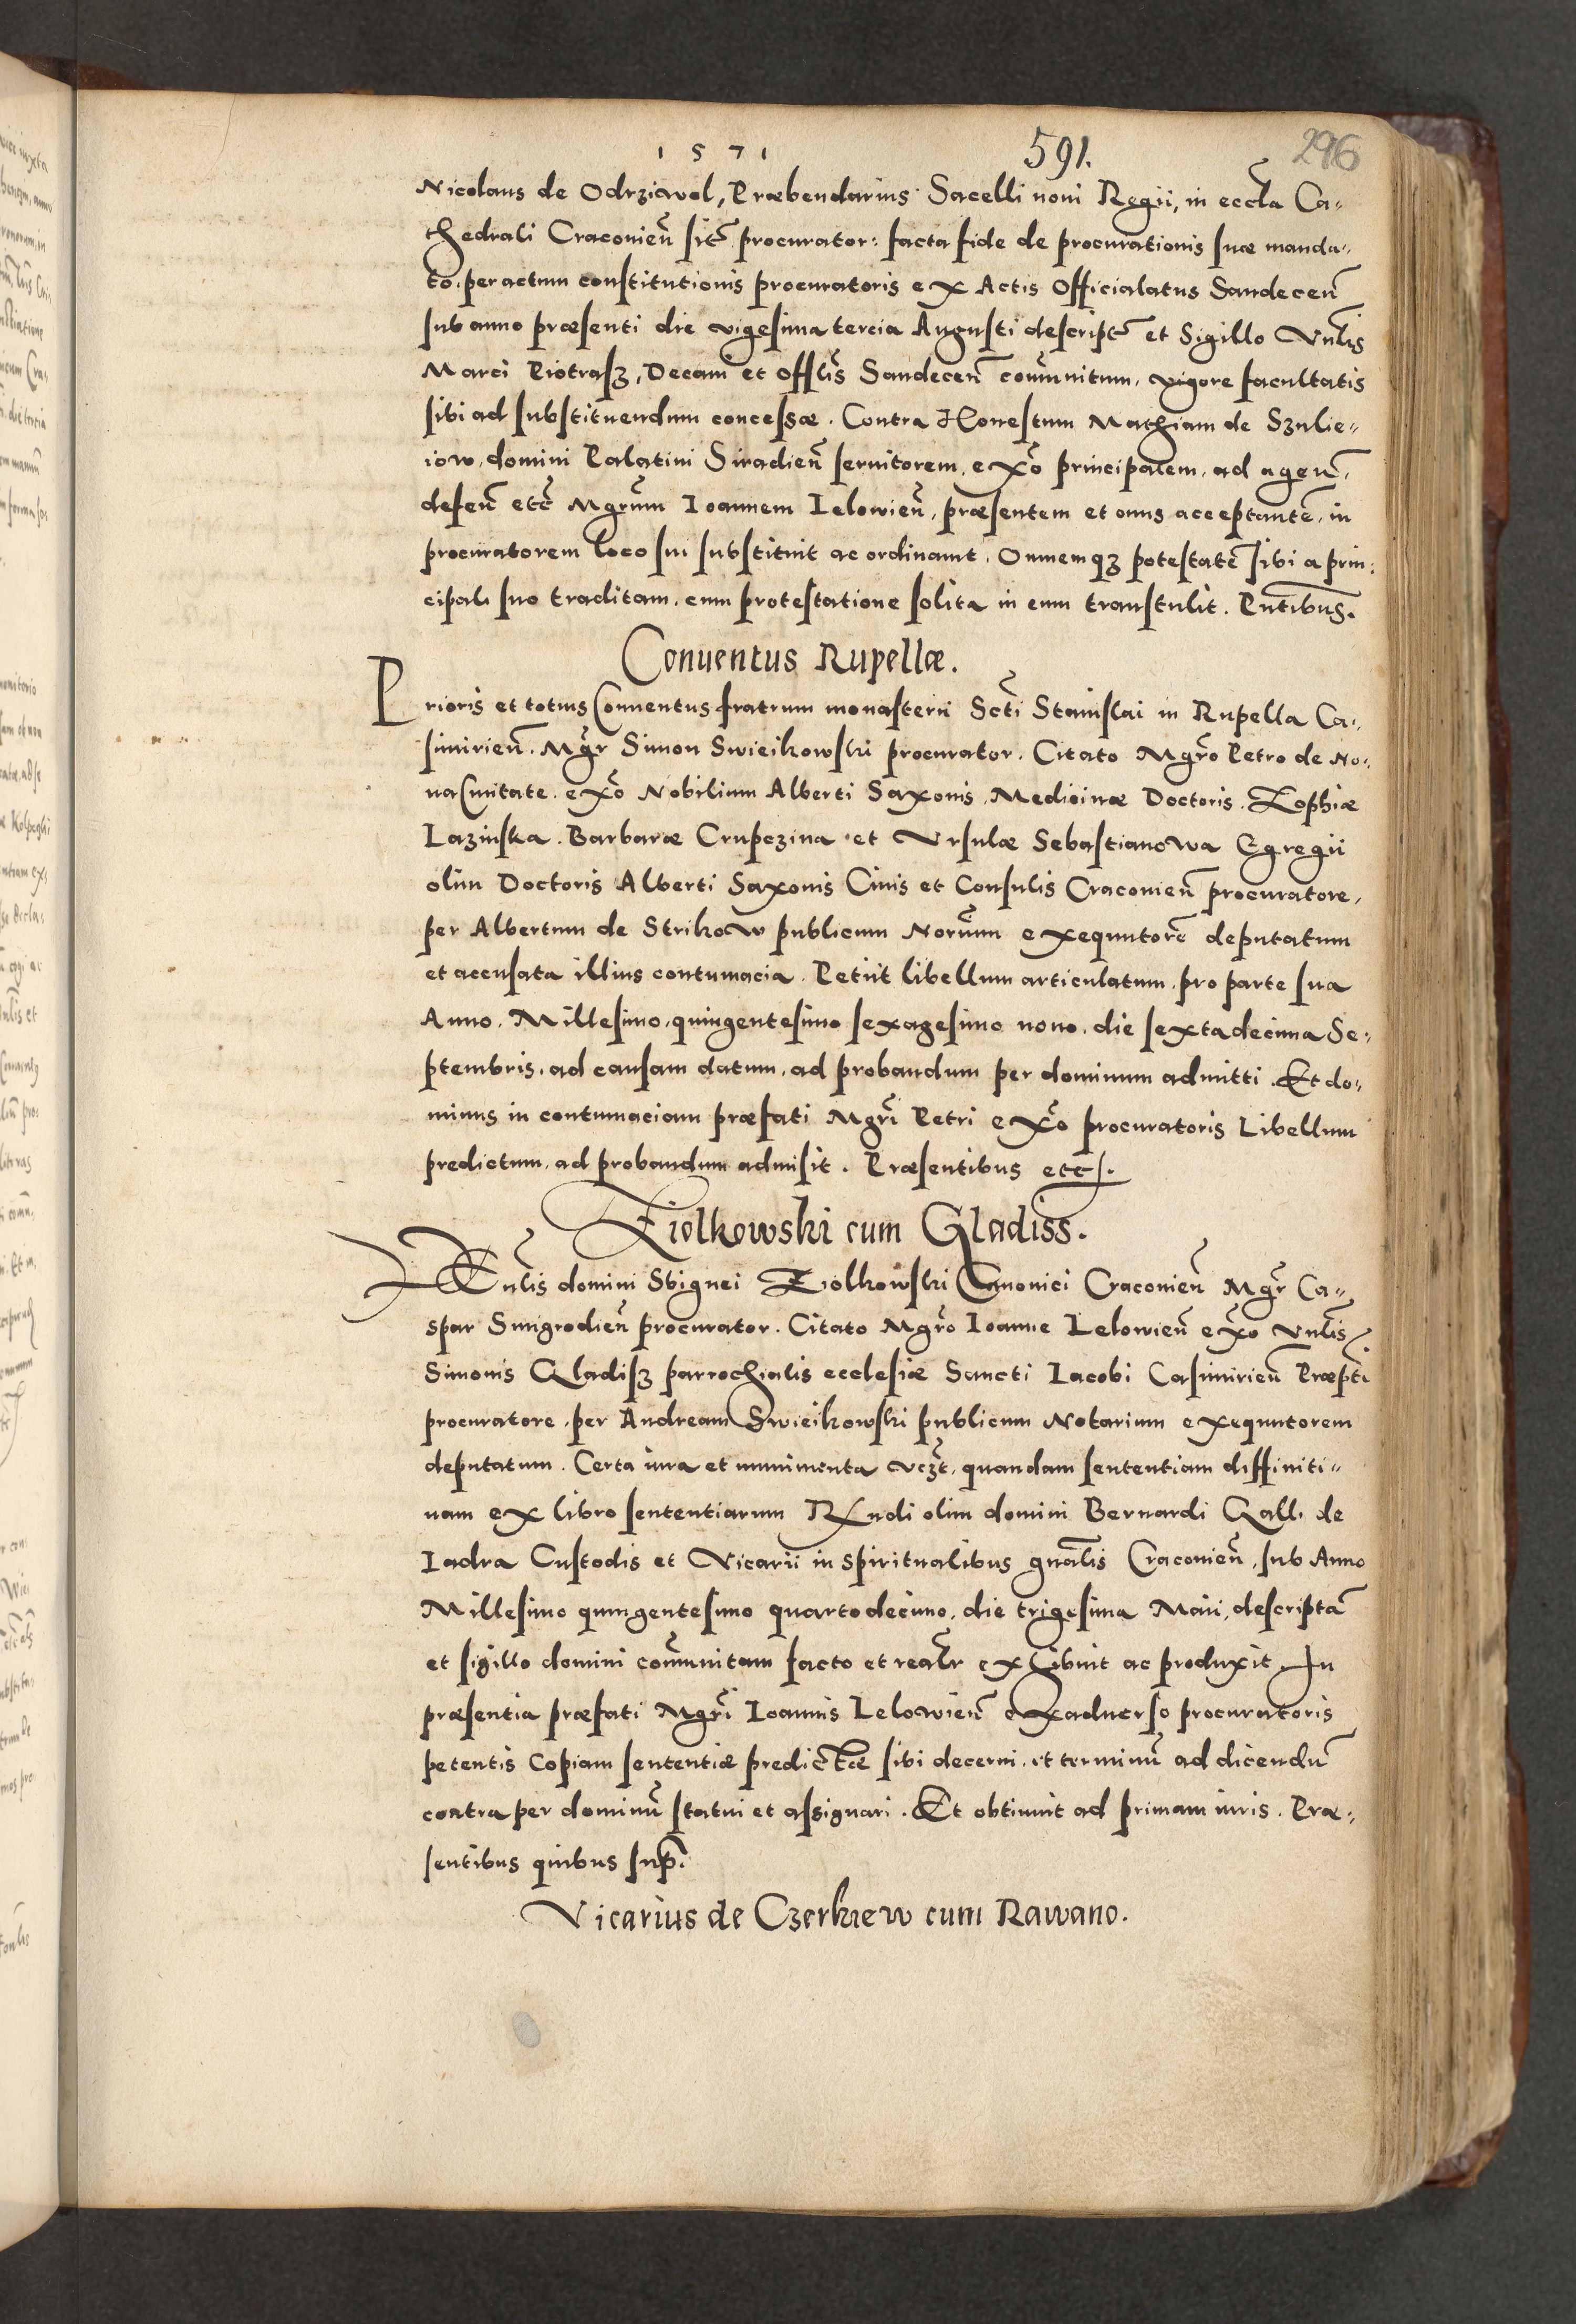 1571 591. 296
Nicolaus de Odrziwol, Præbendarius Sacelli noui Regij, in eccl̃a Ca„
thedrali Craconieñ sit̃ procurator: facta fide de procurationis suæ manda„
to, per actum constitutionis procuratoris ex Actis Officialatus Sandeceñ
sub anno præsenti die vigesima tercia Augusti descript̃ et Sigillo Vnl̃is
Marci Piotrasz, Decani et Offl̃is Sandeceñ com̃unitum, vigore facultatis
sibi ad substituendum concessæ. Contra Honestum Mathiam de Szulie„
iow, domini Palatini Siradieñ seruitorem, ex̃o principalem, ad ageñ,
defeñ etc̃ Mgr̃um Ioannem Lelowieñ, præsentem et onus acceptantẽ, in
procuratorem loco sui substituit ac ordinauit. Omnemqȝ potestatẽ sibi a prin:
cipali suo traditam, cum protestatione solita in eum transtulit. Pñtibus.
Conuentus Rupellæ.
Prioris et totius Conuentus fratrum monasterii Sct̃i Stanislai in Rupella Ca„
simirieñ. Mgr̃ Simon Swieikowski procurator. Citato Mgr̃o Petro de No„
ua Ciuitate. ex̃o Nobilium Alberti Saxonis, Medicinæ Doctoris. Zophiæ
Lazinska. Barbaræ Crupczina et Vrsulæ Sebastianowa Egregii
olim Doctoris Alberti Saxonis Ciuis et Consulis Craconieñ procuratore,
per Albertum de Strikow publicum Nor̃ium exequutorẽ deputatum
et accusata illius contumacia. Petiit libellum articulatum, pro parte sua
Anno. Millesimo, quingentesimo sexagesimo nono, die sextadecima Se„
ptembris, ad causam datum, ad probandum per dominum admitti. Et do„
minus in contumaciam præfati Mgr̃i Petri ex̃o procuratoris Libellum
predictum, ad probandum admisit. Præsentibus etc.
Ziolkowski cum Gladiss.
Vnl̃is domini Sbignei Ziolkowski Canonici Craconieñ Mgr̃ Ca„
spar Smigrodieñ procurator. Citato Mgr̃o Ioanne Lelowieñ ex̃o Vnl̃is
Simonis Gladisz parrochialis ecclesiæ Sancti Iacobi Casimirieñ Præpti
procuratore, per Andream Swieikowski publicum Notarium exequutorem
deputatum. Certa iura et munimenta vczt̃, quandam sententiam diffiniti„
uam ex libro sententiarum Rndi olim domini Bernardi Galli de
Iadra Custodis et Vicarii in spiritualibus gñalis Craconieñ, sub Anno
Millesimo quingentesimo quartodecimo, die trigesima Maii, descriptã
et sigillo domini com̃unitam facto et realr̃ exhibuit ac produxit. In
præsentia præfati Mgr̃i Ioannis Lelowieñ exaduerso procuratoris
petentis copiam sententiæ predictæ sibi decerni, et terminũ ad dicendũ
contra per dominũ statui et assignari. Et obtinuit ad primam iuris. Præ„
sentibus quibus sup.
Vicarius de Czerkiew cum Rawano.